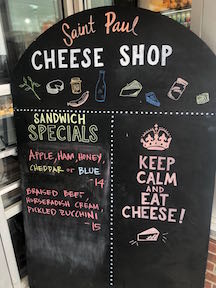 Saint Paul
CHEESE SHOP
SANDWICH
SPECIALS
APPLE, HAM, HONEY,
CHEDDAR or BLUE
-14
BRAISED BEEF,
HORSERADISH CREAM,
PICKLED ZUCCHINI
-15
KEEP
CALM
AND
EAT
CHEESE!